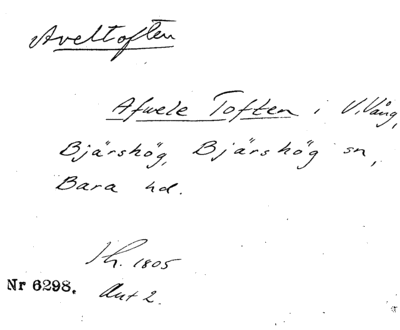 Aveltoften
Afwele Toften i V. Vång,
Bjärshög, Bjärshög sn,
Bara hd.
Ih. 1805
Nr 6298. Akt 2.